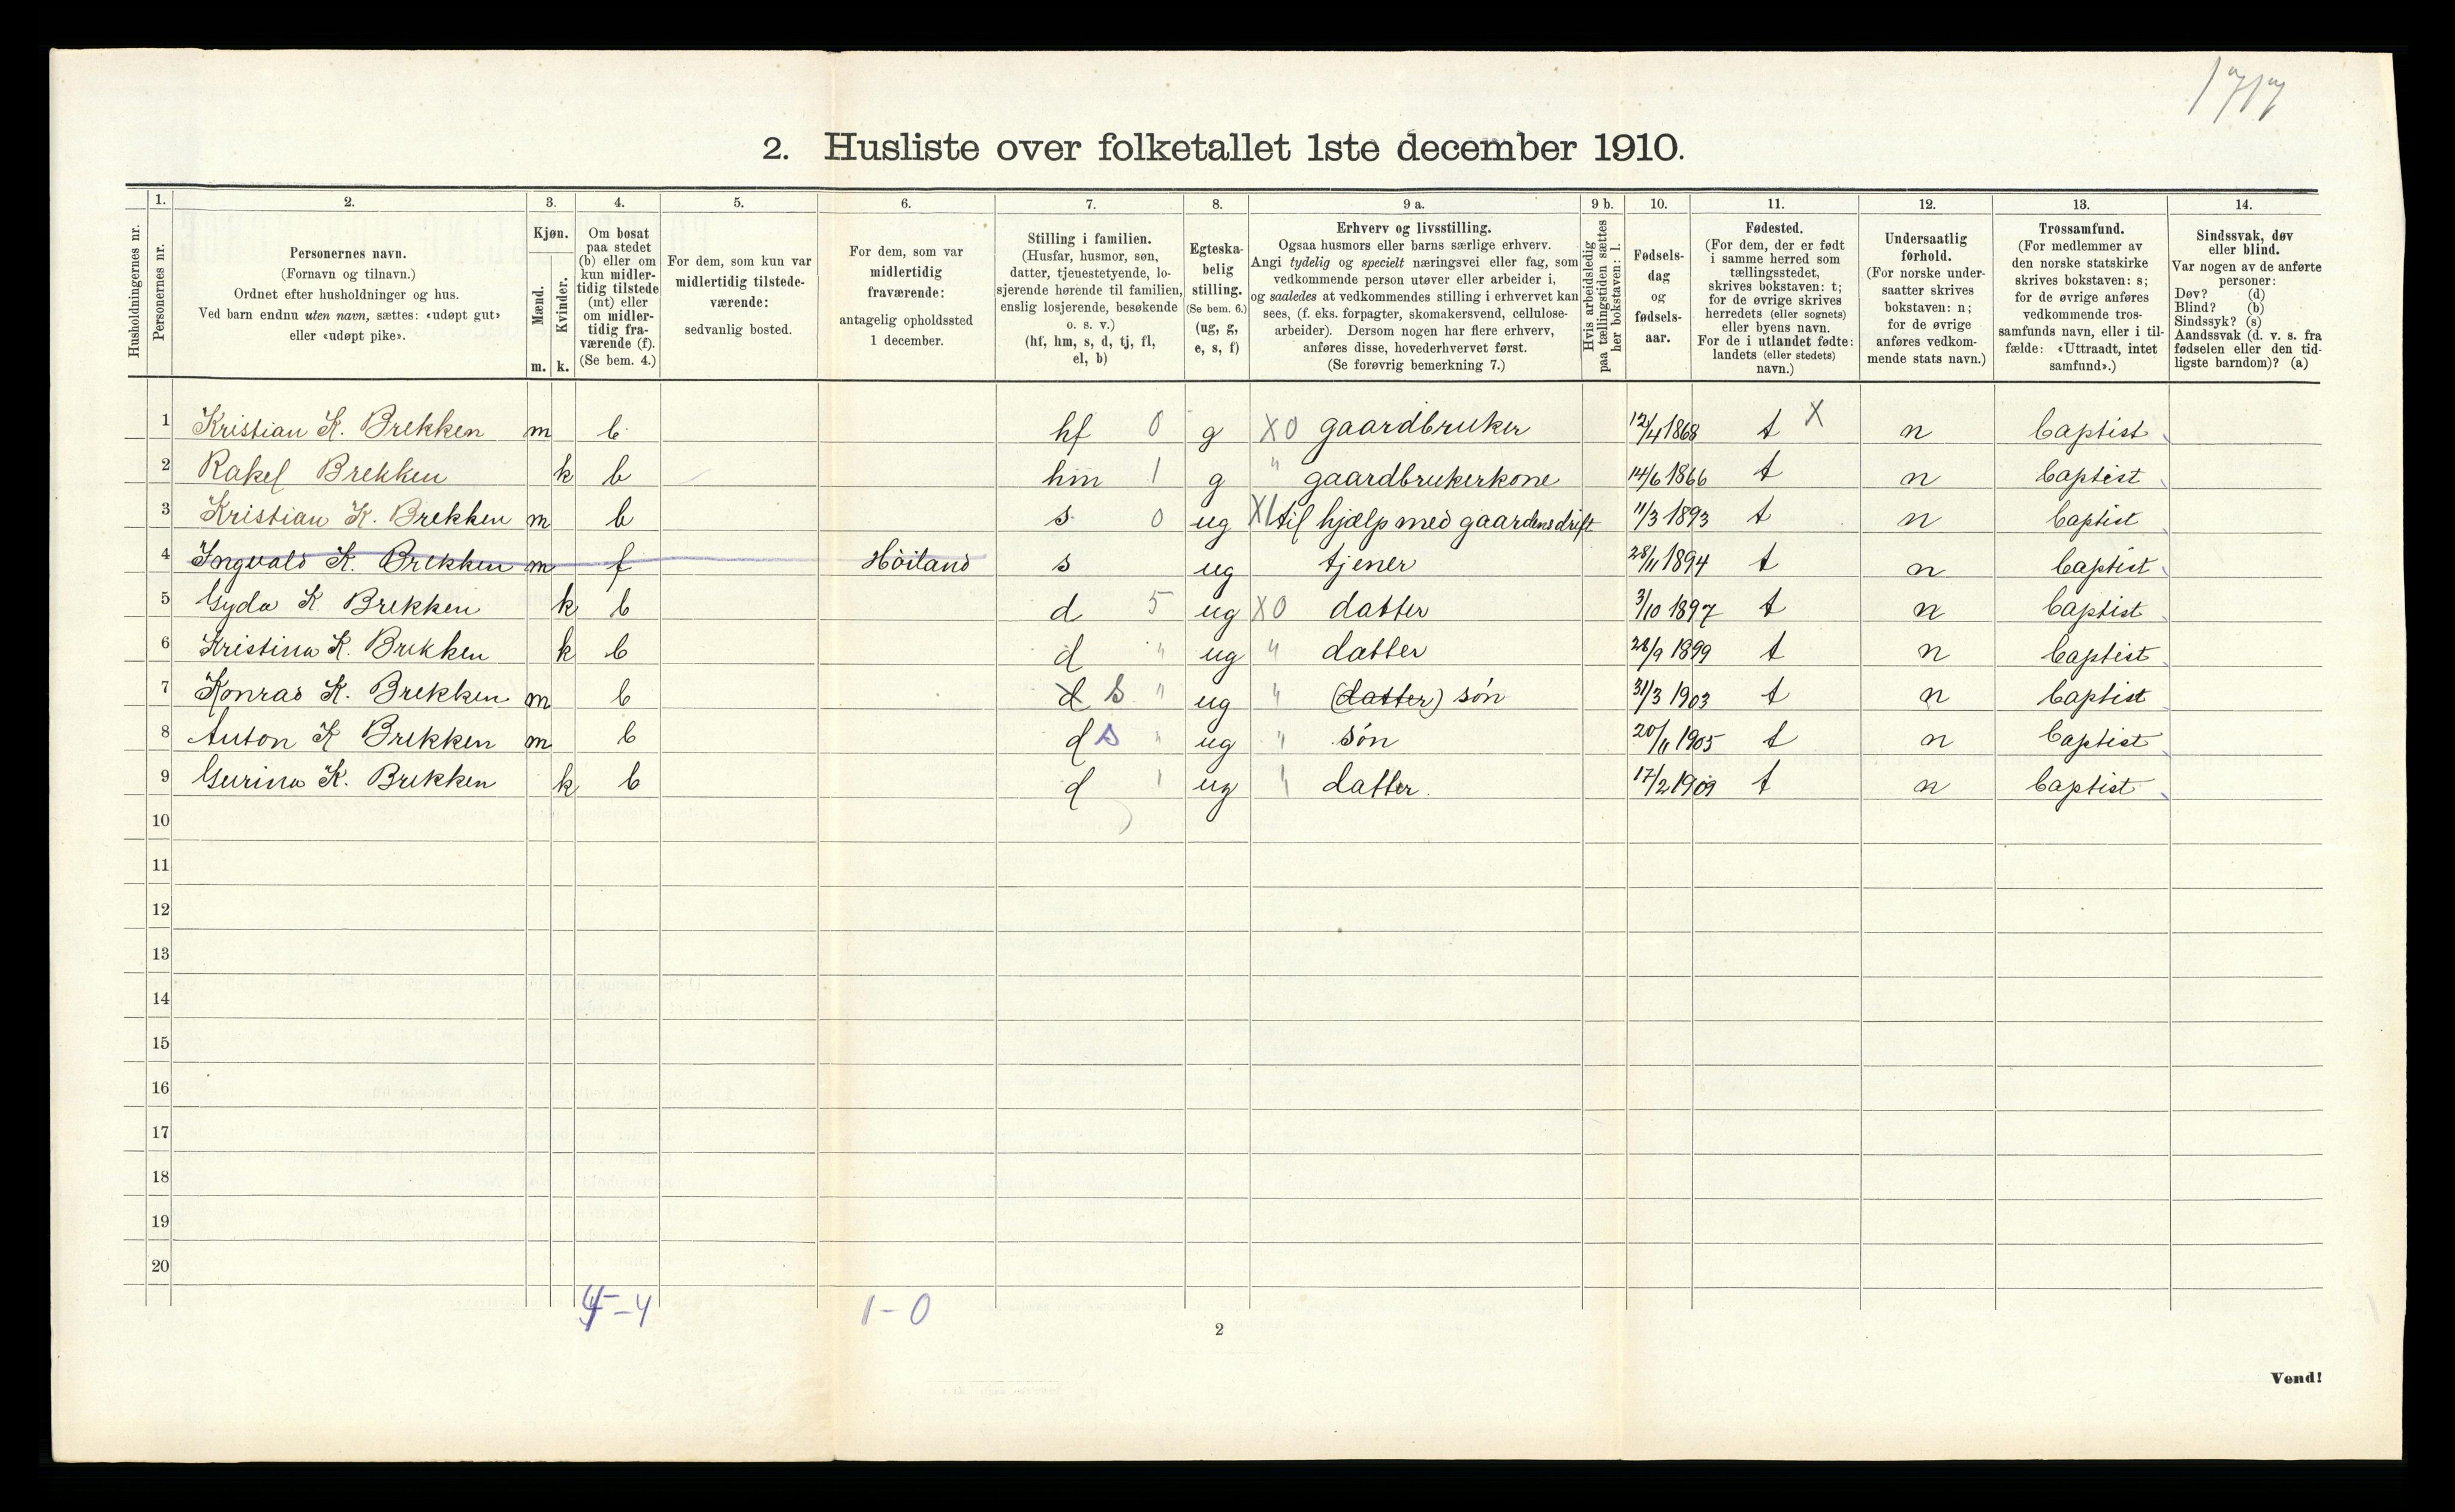 1717
2. Husliste over folketallet 1ste december 1910.
Husholdningernes nr.
1. Personernes nr.
2. Personernes navn.
(Fornavn og tilnavn.)
Ordnet efter husholdninger og hus.
Ved barn endnu uten navn, sættes: «udøpt gut»
eller «udøpt pike».
3. Kjøn.
Mænd. m.
Kvinder. k.
4. Om bosat
paa stedet
(b) eller om
kun midler-
tidig tilstede
(mt) eller
om midler-
tidig fra-
værende (f).
(Se bem. 4.)
5. For dem, som kun var
midlertidig tilstede-
værende:
sedvanlig bosted.
6. For dem, som var
midlertidig
fraværende:
antagelig opholdssted
1 december.
7. Stilling i familien.
(Husfar, husmor, søn,
datter, tjenestetyende, lo-
sjerende hørende til familien,
enslig losjerende, besøkende
o. s. v.)
(hf, hm, s, d, tj, fl,
el, b)
8. Egteska-
belig
stilling.
(Se bem. 6.)
(ug, g,
e, s, f)
9 a. Erhverv og livsstilling.
Ogsaa husmors eller barns særlige erhverv.
Angi tydelig og specielt næringsvei eller fag, som
vedkommende person utøver eller arbeider i,
og saaledes at vedkommendes stilling i erhvervet kan
sees, (f. eks. forpagter, skomakersvend, cellulose-
arbeider). Dersom nogen har flere erhverv,
anføres disse, hovederhvervet først.
(Se forøvrig bemerkning 7.)
9 b. Hvis arbeidsledig
paa tællingstiden sættes
her bokstaven: l.
10. Fødsels-
dag
og
fødsels-
aar.
11. Fødested.
(For dem, der er født
i samme herred som
tællingsstedet,
skrives bokstaven: t;
for de øvrige skrives
herredets (eller sognets)
eller byens navn.
For de i utlandet fødte:
landets (eller stedets)
navn.)
12. Undersaatlig
forhold.
(For norske under-
saatter skrives
bokstaven: n;
for de øvrige
anføres vedkom-
mende stats navn.)
13. Trossamfund.
(For medlemmer av
den norske statskirke
skrives bokstaven: s;
for de øvrige anføres
vedkommende tros-
samfunds navn, eller i til-
fælde: «Uttraadt, intet
samfund».)
14. Sindssvak, døv
eller blind.
Var nogen av de anførte
personer:
Døv? (d)
Blind? (b)
Sindssyk? (s)
Aandssvak (d. v. s. fra
fødselen eller den tid-
ligste barndom)? (a)
1 Kristian K. Brekken m b hf 0 g X0 gaardbruker 12/4 1868 t X n baptist
2 Rakel Brekken k b hm 1 g " gaardbrukerkone 14/6 1866 t n baptist
3 Kristian K. Brekken m b s 0 ug X1 til hjælp med gaardens drift 11/3 1893 t n baptist
4 Ingvald K. Brekken m f Höiland s ug tjener 28/11 1894 t n baptist
5 Gyda K Brekken k b d 5 ug X0 datter 3/10 1897 t n baptist
6 Kristina K. Brekken k b d " ug " datter 28/9 1899 t n baptist
7 Konrad K. Brekken m b d s " ug " (datter) søn 31/3 1903 t n baptist
8 Anton K Brekken m b d s " ug " søn 20/11 1905 t n baptist
9 Gurina K. Brekken k b d " ug " datter. 17/2 1909 t n baptist
10
11
12
13
14
15
16
17
18
19
20
4-4
1-0
2
Vend!